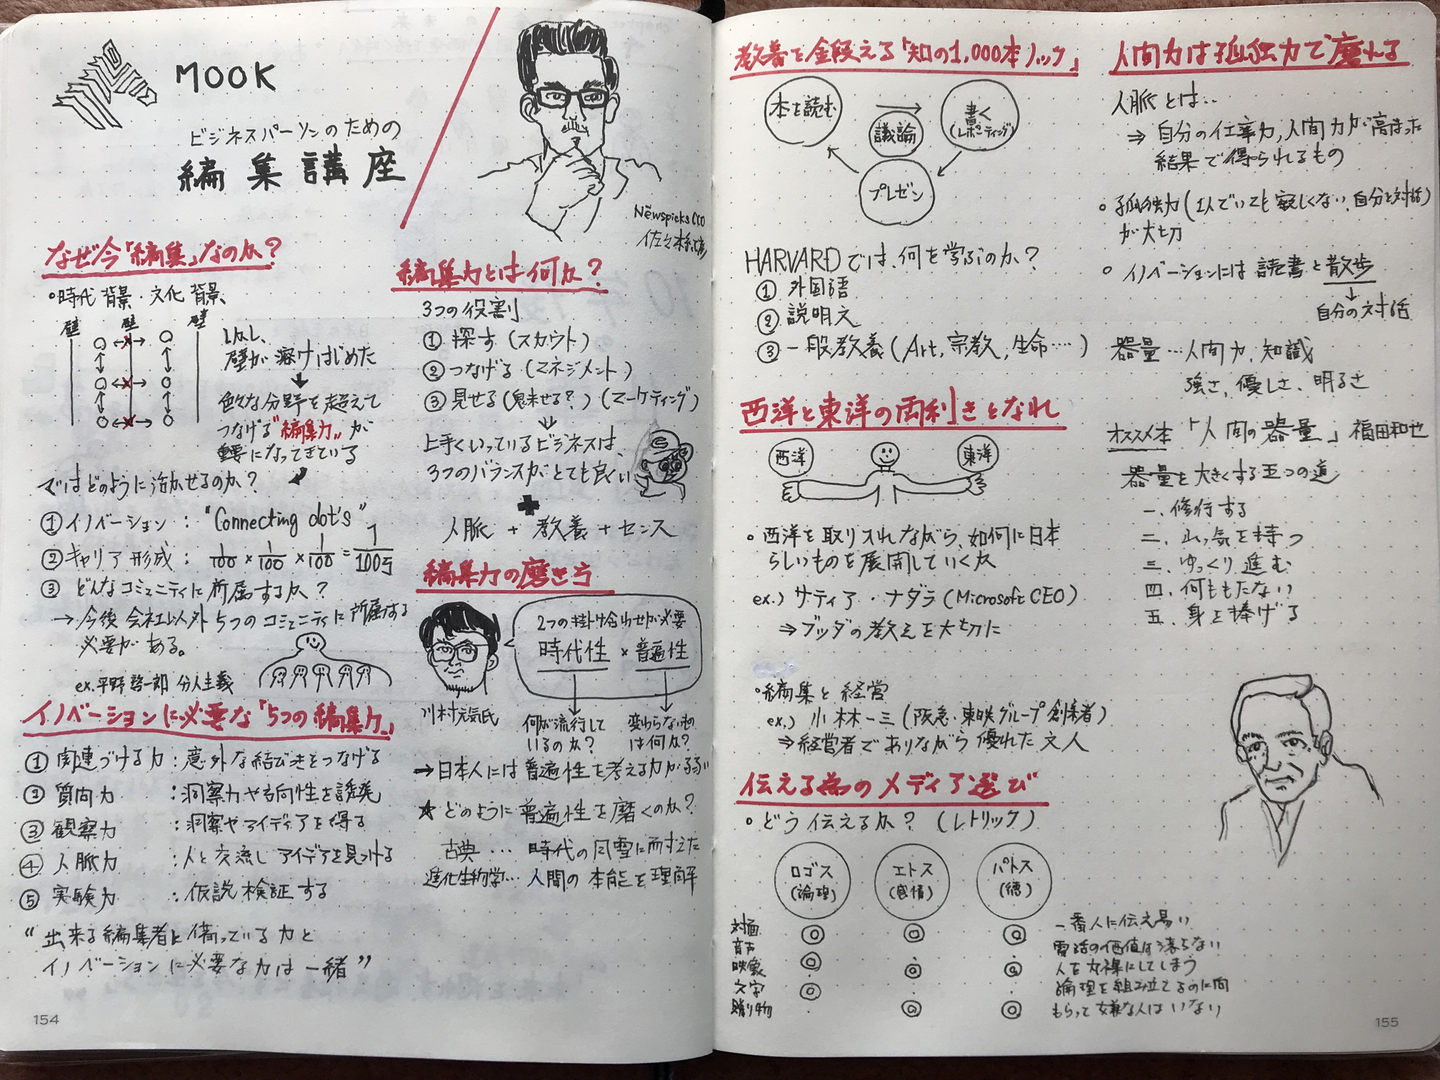 MOOK
ビジネスパーソンのための
編集講座
Newspicks CCO
佐々木紀彦
なぜ今「編集」なのか?
・時代背景・文化背景、
壁 壁 壁
しかし、
壁が溶けはじめた
色々な分野を超えて
つなげる"編集力"が
重要になってきている
ではどのように活かせるのか?
①イノベーション : "Connecting dot's"
②キャリア形成 : 1/100 × 1/100 × 1/100 = 1/100万
③どんなコミュニティに所属するか?
→今後会社以外5つのコミュニティに所属する
必要がある。
ex.平野啓一郎 分人主義
イノベーションに必要な「5つの編集力」
①関連づける力 : 意外な結びつきをつなげる
②質問力 : 洞察力や方向性を誘発
③観察力 : 洞察やアイディアを得る
④人脈力 : 人と交流しアイデアを見つける
⑤実験力 : 仮説検証する
"出来る編集者に備っている力と
イノベーションに必要な力は一緒"
154
編集力とは何か?
3つの役割
①探す(スカウト)
②つなげる(マネジメント)
③見せる(魅せる?)(マーケティング)
上手くいっているビジネスは、
3つのバランスがとても良い
+
人脈 + 教養 + センス
編集力の磨き方
2つの掛け合わせが必要
時代性 × 普遍性
川村元気氏
何が流行して
いるのか?
変わらないもの
は何か?
→日本人には普遍性を考える力が弱い
★どのように普遍性を磨くのか?
古典… 時代の風雪に耐えた
進化生物学… 人間の本能を理解
教養を鍛える「知の1,000本ノック」
本を読む
議論
書く
(レポーティング)
プレゼン
HARVARDでは、何を学ぶのか?
①外国語
②説明文
③一般教養(Art,宗教,生命…)
西洋と東洋の両利きとなれ
西洋
東洋
・西洋を取り入れながら、如何に日本
らしいものを展開していくか
ex.) サティア・ナダラ(Microsoft CEO)
⇒ブッダの教えを大切に
・編集と経営
ex.) 小林一三(阪急・東映グループ創業者)
⇒経営者でありながら優れた文人
伝える為のメディア選び
・どう伝えるか?(レトリック)
ロゴス
(論理)
エトス
(感情)
パトス
(徳)
対面 ◎ ◎ ◎ 一番人に伝え易い
音声 ◎ ・ ・ 電話の価値は落ちない
映像 ・ ◎ ◎ 人を丸裸にしてしまう
文字 ◎ ・ ・ 論理を組み立てるのに向
贈り物 ・ ◎ ◎ もらって嫌な人はいない
人間力は孤独力で磨れる
人脈とは‥
⇒自分の仕事力,人間力が高まった
結果で得られるもの
・孤独力(1人でいても寂しくない,自分と対話)
が大切
・イノベーションには読書と散歩
自分の対話
器量…人間力、知識
強さ、優しさ、明るさ
オススメ本「人間の器量」福田和也
器量を大きくする五つの道
一、修行する
二、山っ気を持つ
三、ゆっくり進む
四、何ももたない
五、身を捧げる
155